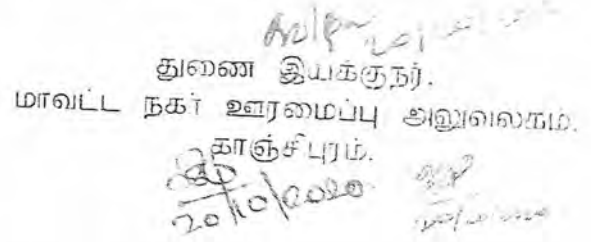 துணை இயக்குநர்.
மாவட்ட நகர் ஊரமைப்பு அலுவலகம்.
காஞ்சிபுரம்.
20/10/2020